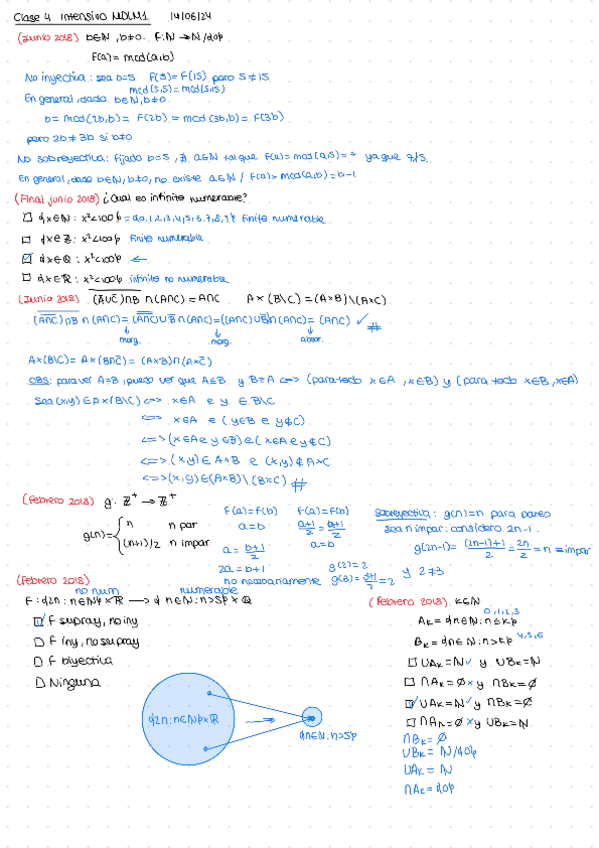 Clase 4 intensivo MDLM1 14/06/24
(Junio 2018) b∈N, b≠0. F: N→N/{0}
F(a) = mcd(a,b)
No inyectiva: sea b=5 F(5) = F(15) pero 5≠15
mcd(5,5) = mcd(5,15)
En general, dado b∈N, b≠0
b = mcd(2b,b) = F(2b) = mcd(3b,b) = F(3b)
pero 2b≠3b si b≠0
No sobreyectiva: fijado b=5, ∄ a∈N tal que F(a) = mcd(a,5) = 7 ya que 7∤5.
En general, dado b∈N, b≠0, no existe a∈N / F(a) = mcd(a,b) = b-1
(Final junio 2018) ¿Cual es infinito numerable?
□ {x∈N: x²<100} = {0,1,2,3,4,5,6,7,8,9} finito numerable.
□ {x∈Z: x²<100} Finito numerable
☑ {x∈Q: x²<100} ←
□ {x∈R: x²<100} infinito no numerable
(Junio 2018)
A×(B\C) = (A×B)\(A×C).
morg. morg. absor.
A×(B\C) = A×(B∩C̅) = (A×B)∩(A×C̅)
OBS: para ver A=B, puedo ver que A⊆B y B⊆A <=> (para todo x∈A, x∈B) y (para todo x∈B, x∈A)
Sea (x,y)∈A×(B\C) <=> x∈A e y∈B\C
<=> x∈A e (y∈B e y∉C)
<=> (x∈A e y∈B) e (x∈A e y∉C)
<=> (x,y)∈A×B e (x,y)∉A×C
<=> (x,y)∈(A×B)\(B×C) #
(Febrero 2018) g: Z⁺→Z⁺
g(n) = { n n par
(n+1)/2 n impar
F(a)=F(b) F(a)=F(b)
a=b (a+1)/2 = (b+1)/2
a = (b+1)/2 a=b
2a = b+1 g(2)=2
no necesariamente g(3) = (3+1)/2 = 2 y 2≠3
Sobreyectiva: g(n)=n para pares
sea n impar: considero 2n-1.
g(2n-1) = ((2n-1)+1)/2 = 2n/2 = n = impar
(Febrero 2018)
no num numerable
F: {2n: n∈N}×R → {n∈N: n>5}×Q
☑ F supray, no iny
□ F iny, no supray
□ F biyectiva
□ Ninguna
{2n: n∈N}×R
{n∈N: n>5}
(Febrero 2018) K∈N
0,1,2,3
Aₖ = {n∈N: n≤K}
Bₖ = {n∈N: n>K} 4,5,6
□ ∪Aₖ = N ✓ y ∪Bₖ = N
□ ∩Aₖ = ∅ × y ∩Bₖ = ∅
☑ ∪Aₖ = N ✓ y ∩Bₖ = ∅
□ ∩Aₖ = ∅ × y ∪Bₖ = N
∩Bₖ = ∅
∪Bₖ = N/{0}
∪Aₖ = N
∩Aₖ = {0}